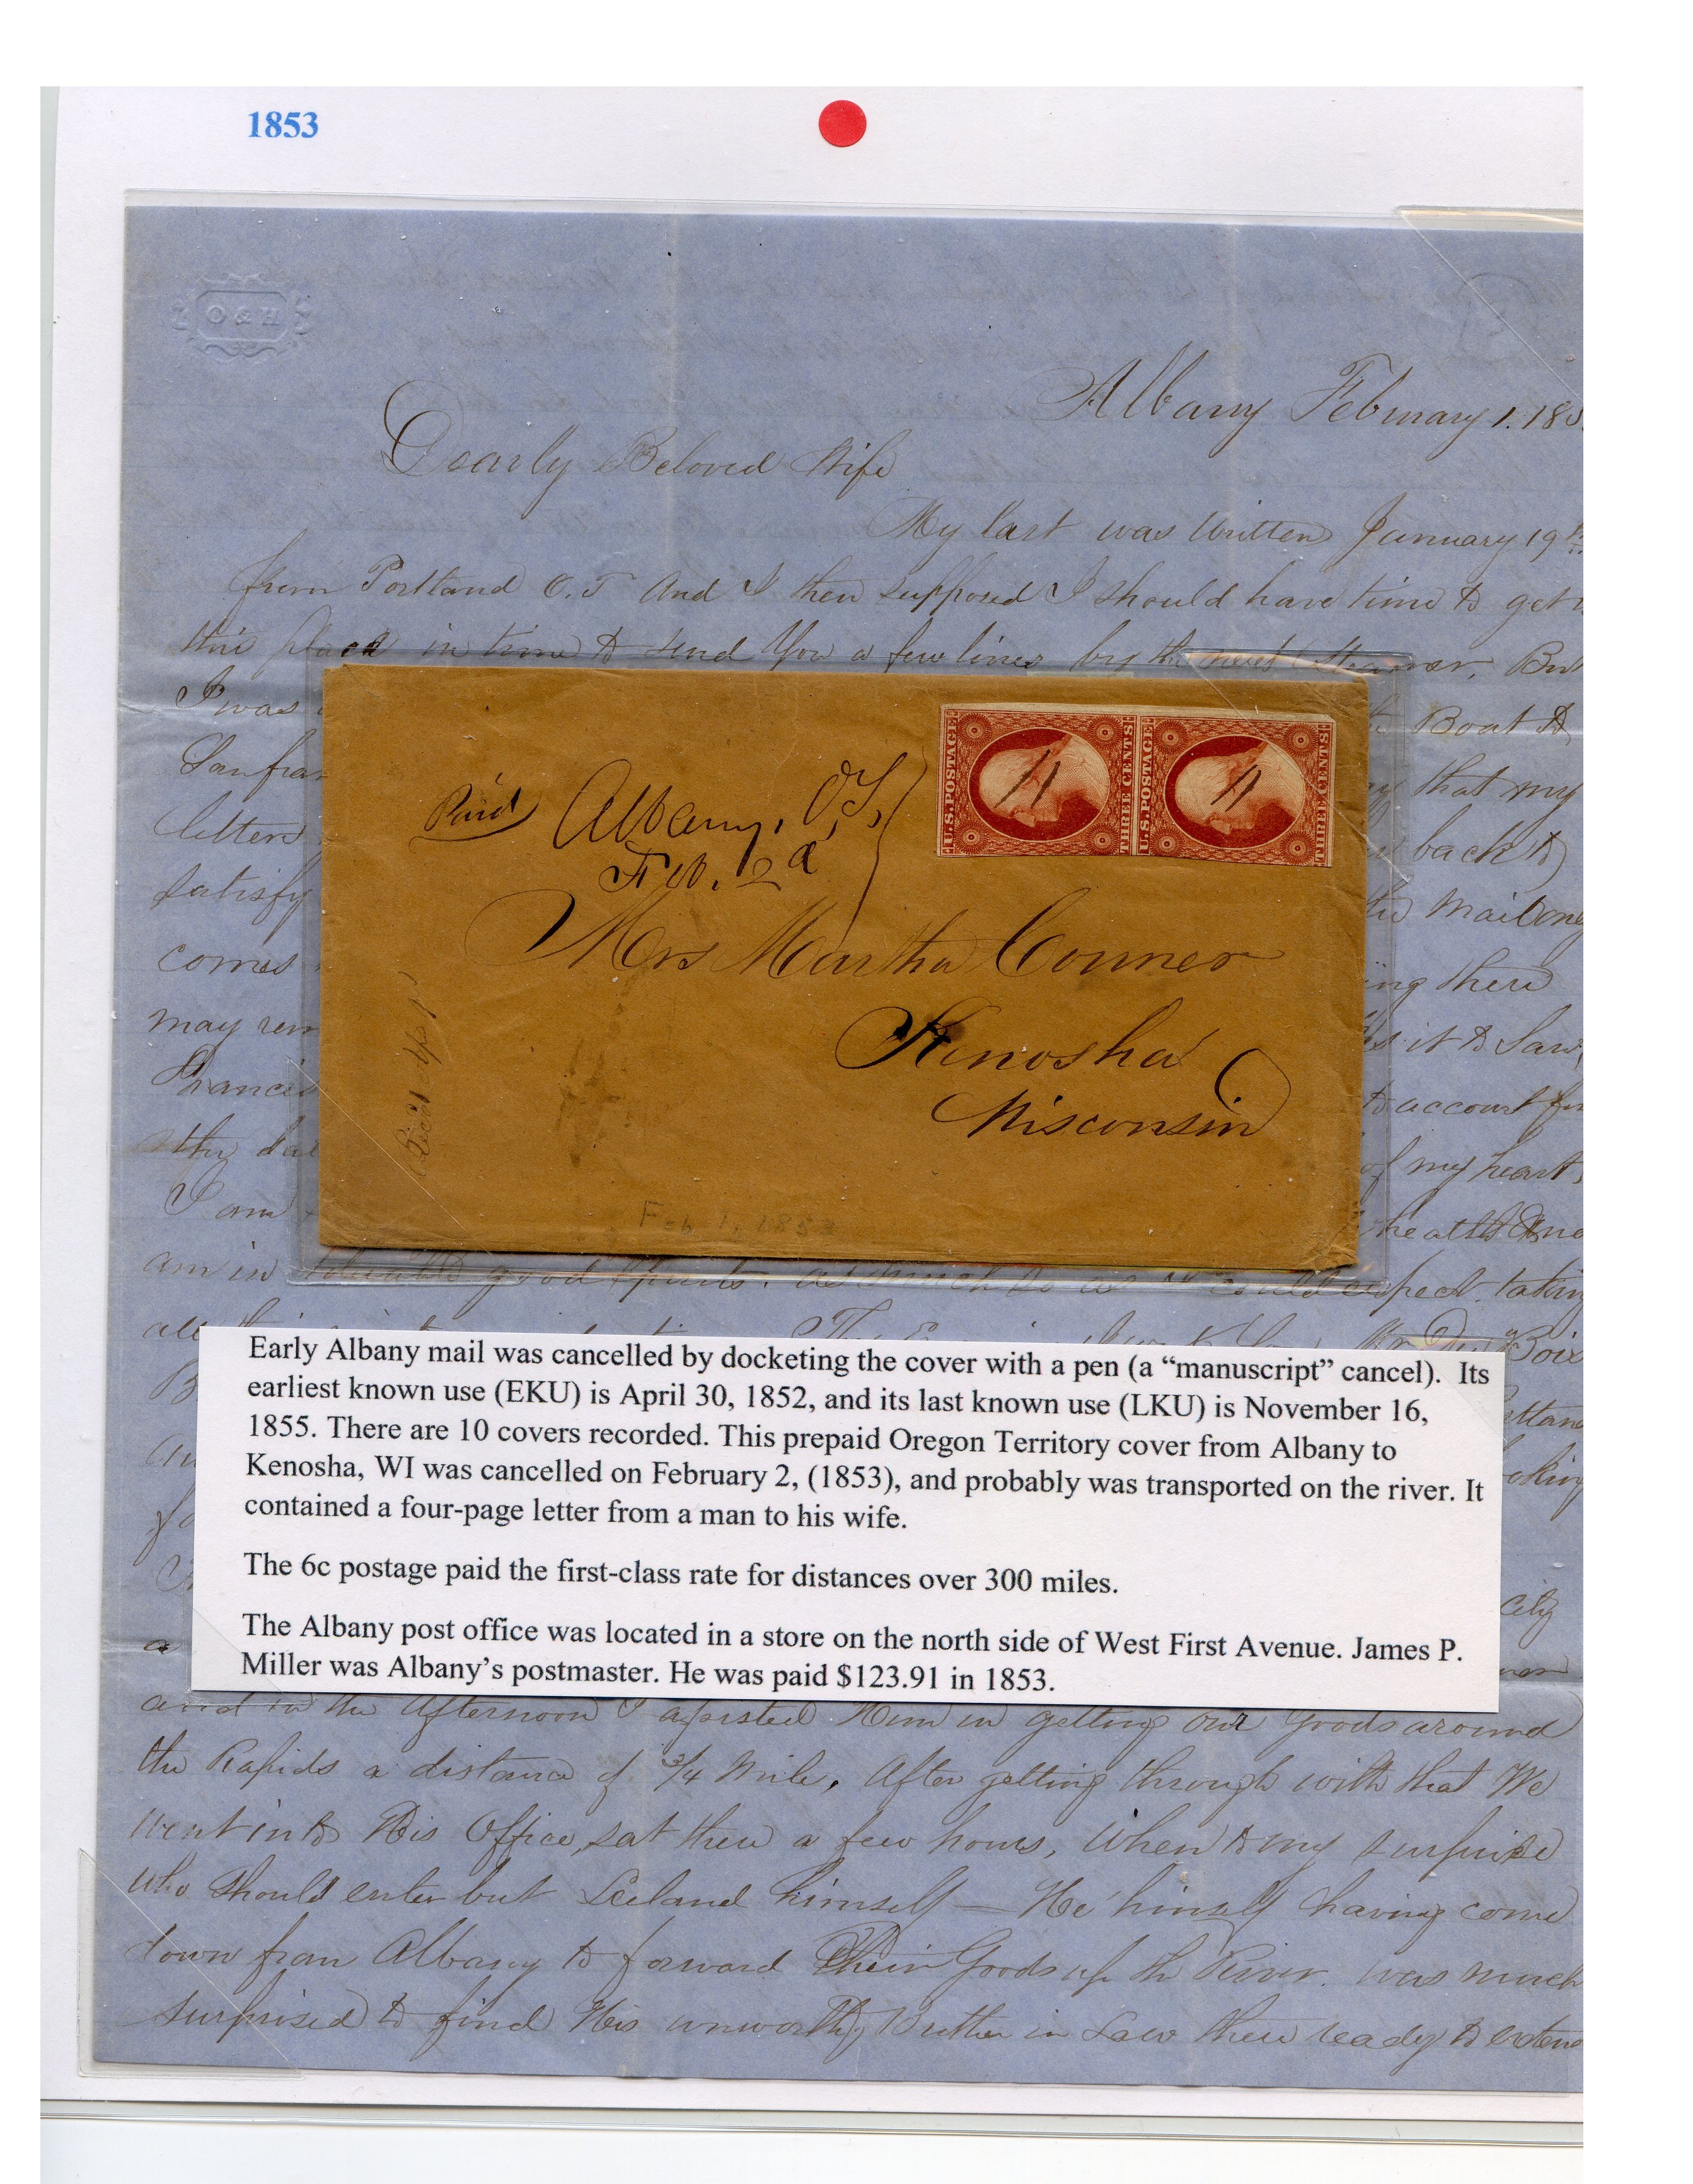 1853
O & H
Albany February 1. 185
Dearly Beloved Wife
My last was written January 19th
from Portland O.T And I then supposed I should have time to get
this place in time to send You a few lines by the next Steamer, But
I was
Boat to
Sanfran
that my
letters
back to
satisfy
the Mail one
comes
ing there
may rem
it to San
Francis
to account for
the del
of my heart,
I am
health And
am in good spirits. as much so as I could expect. taking
all
U.S. POSTAGE THREE CENTS U.S. POSTAGE THREE CENTS
Paid Albany, O.T,
Feb. 2d
Mrs Martha Conner
Kenosha
Wisconsin
Rec'd Apl
Feb 1, 1853
Early Albany mail was cancelled by docketing the cover with a pen (a “manuscript” cancel). Its
earliest known use (EKU) is April 30, 1852, and its last known use (LKU) is November 16,
1855. There are 10 covers recorded. This prepaid Oregon Territory cover from Albany to
Kenosha, WI was cancelled on February 2, (1853), and probably was transported on the river. It
contained a four-page letter from a man to his wife.
The 6c postage paid the first-class rate for distances over 300 miles.
The Albany post office was located in a store on the north side of West First Avenue. James P.
Miller was Albany’s postmaster. He was paid $123.91 in 1853.
city
a
and in the Afternoon I assisted Him in getting our Goods around
the Rapids a distance of 3/4 Mile, After getting through with that We
went in to His Office, sat there a few hours, When to my surprise
who should enter but Leland himself — He himself having come
down from Albany to forward Their Goods up the River. was much
surprised to find His unworthy Brother in Law there ready to extend